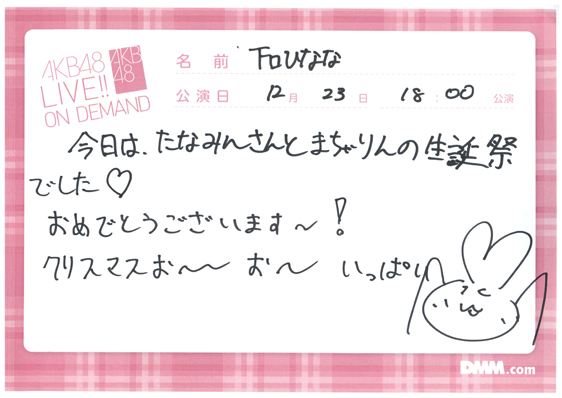 AKB48
LIVE!!
ON DEMAND
AKB
48
名前 下口ひなな
公演日 12月 23日 18:00 公演
今日は、たなみんさんとまちゃりんの生誕祭
でした♡
おめでとうございます〜!
クリスマスお〜〜 お〜 いっぱい
DMM.com